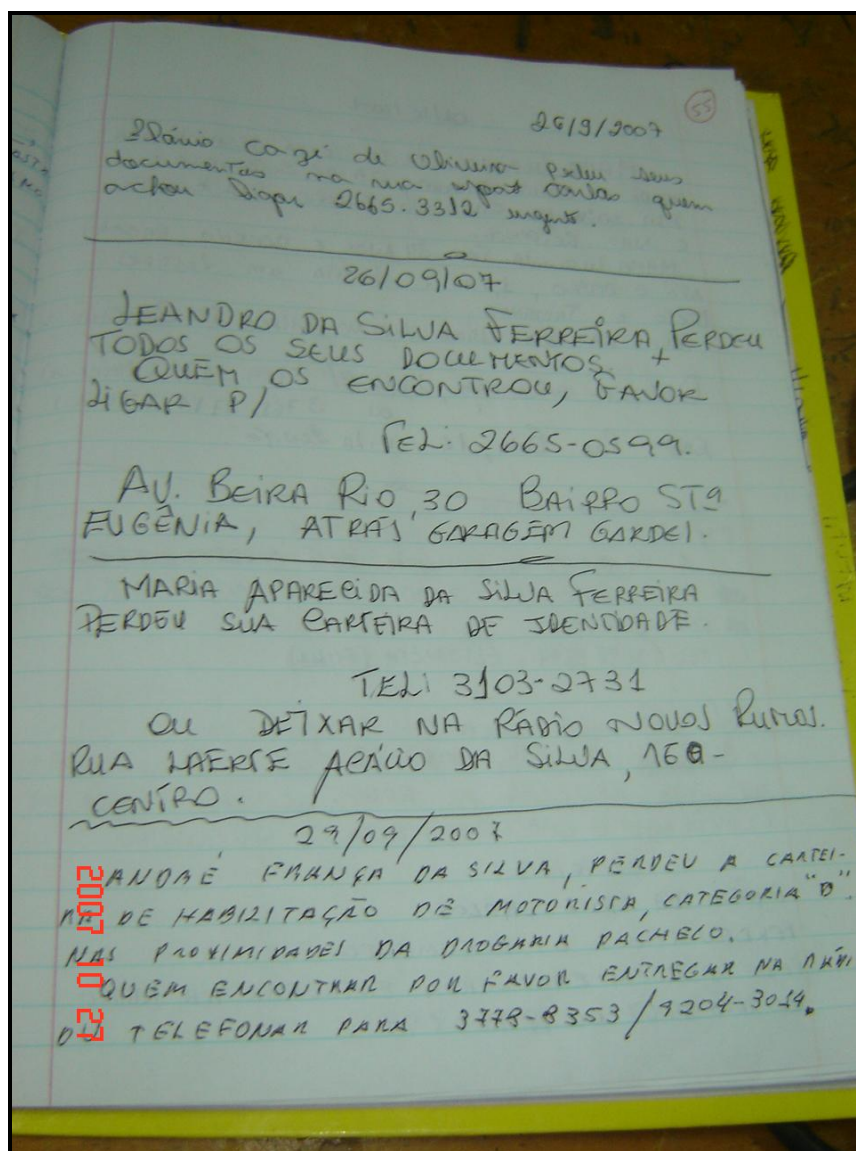 55
26/9/2007
Flávio de Oliveira seus
documentos na rua quem
achou ligar 2665.3312 urgente.
26/09/07
LEANDRO DA SILVA FERREIRA, PERDEU
TODOS OS SEUS DOCUMENTOS,
QUEM OS ENCONTROU, FAVOR
LIGAR P/
TEL: 2665-0599.
AV. BEIRA RIO, 30 BAIRRO STª
EUGÊNIA, ATRÁS GARAGEM GARDEL.
MARIA APARECIDA DA SILVA FERREIRA
PERDEU SUA CARTEIRA DE IDENTIDADE.
TEL: 3103-2731
OU DEIXAR NA RÁDIO NOVOS RUMOS.
RUA LAERTE ACÁCIO DA SILVA, 160-
CENTRO.
29/09/2007
ANDRÉ FRANÇA DA SILVA, PERDEU A CARTEI-
RA DE HABILITAÇÃO DE MOTORISTA, CATEGORIA "B".
NAS PROXIMIDADES DA DROGARIA PACHECO.
QUEM ENCONTRAR POR FAVOR ENTREGAR NA RÁDI
OU TELEFONAR PARA 3778-8353/9204-3014.
2007 10 27